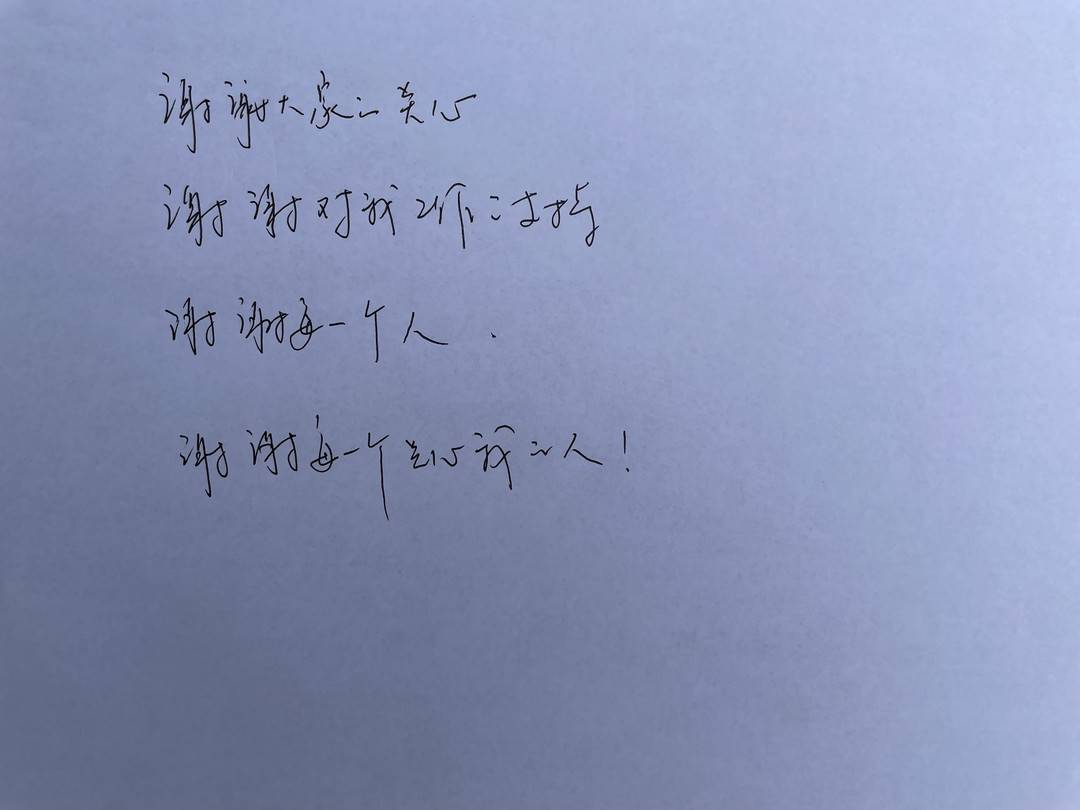 谢谢大家的关心
谢谢对我工作的支持
谢谢每一个人.
谢谢每一个关心我的人!